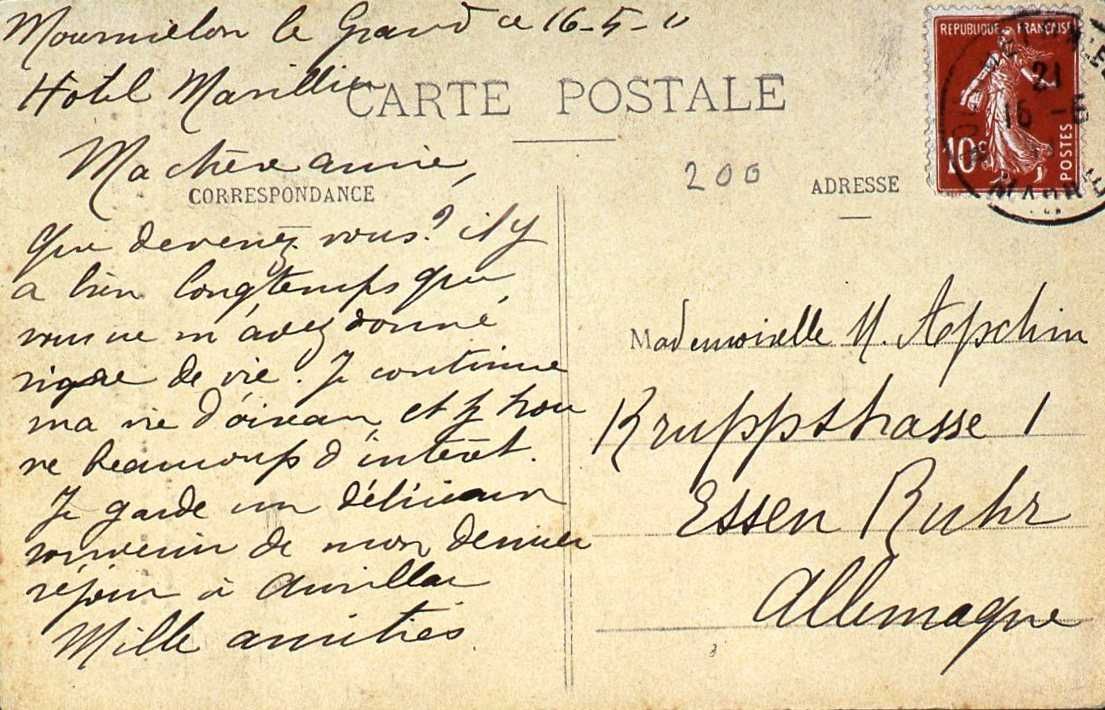 Mourmelon le Grand ce 16-5-11
Hotel Marillier
CARTE POSTALE
Ma chère amie,
200
CORRESPONDANCE
ADRESSE
REPUBLIQUE FRANÇAISE
10c
POSTES
21
16 -5
MARNE
que devenez vous? il y
a bien longtemps que
vous ne m'avez donné
signe de vie. Je continue
ma vie d'oiseau, et j'y trou
ve beaucoup d'intérêt.
Je garde un délicieux
souvenir de mon dernier
séjour à Aurillac
Mille amitiés
Mademoiselle M. Apschin
Kruppstrasse 1
Essen Ruhr
Allemagne